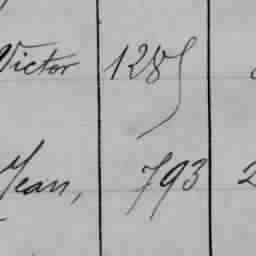 Victor 1285
Jean, 793 2